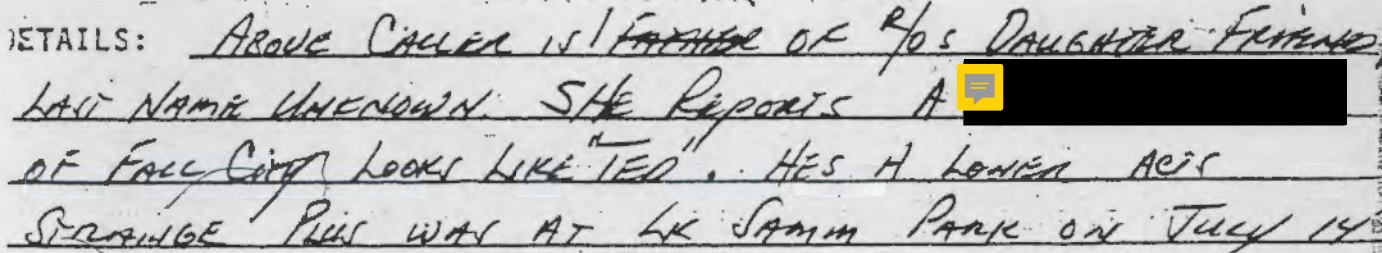 DETAILS: ABOVE CALLER IS FATHER OF R/OS DAUGHTER FRIEND,
LAST NAME UNKNOWN. SHE REPORTS A
OF FALL CITY LOOKS LIKE "TED". HES A LONER ACTS
STRANGE PLUS WAS AT LK SAMM PARK ON JULY 14